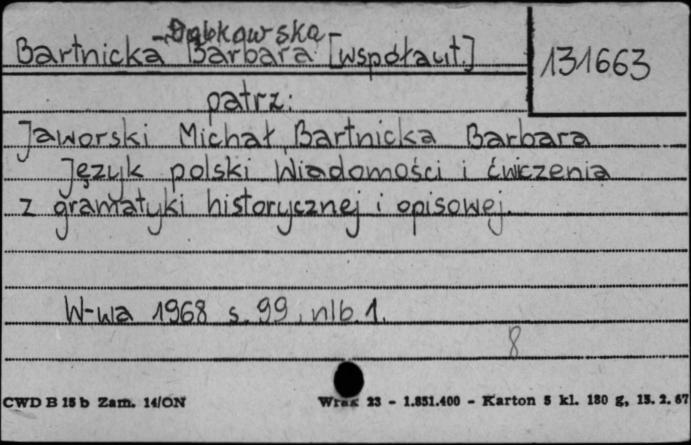 -Dąbkowska-
Bartnicka Barbara [współaut.]
131663
patrz:
Jaworski Michał, Bartnicka Barbara
Język polski Wiadomości i ćwiczenia
z gramatyki historycznej i opisowej.
W-wa 1968 s. 99, nlb. 1.
8
CWD B 15 b Zam. 14/ON
Wrax 23 - 1.851.400 - Karton 5 kl. 180 g, 15. 2. 67